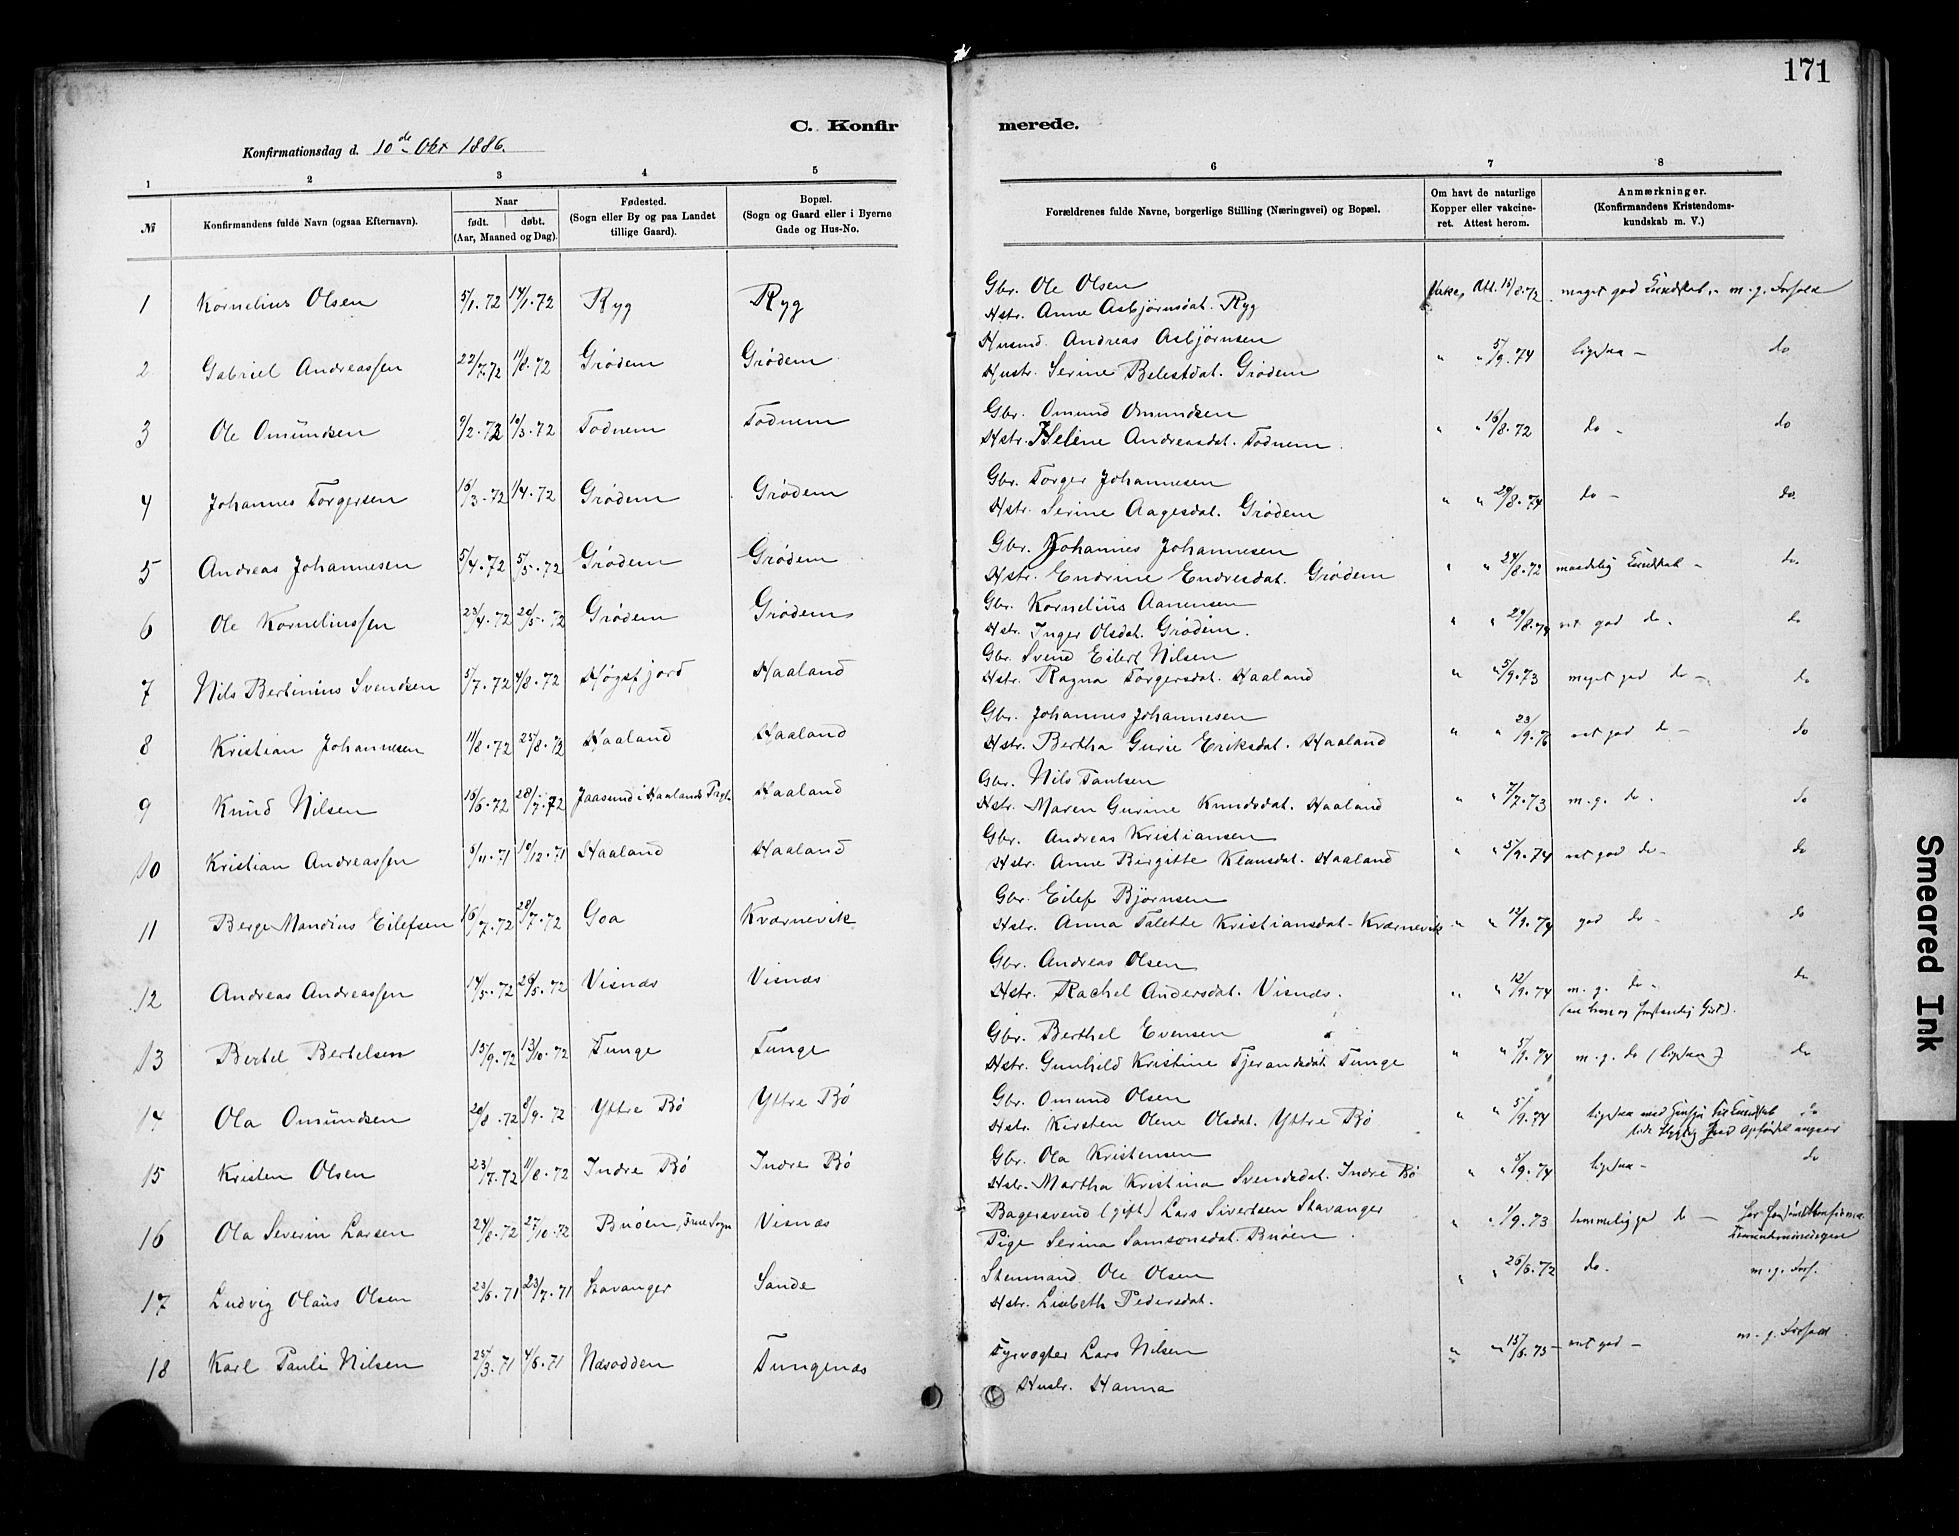 171
C. Konfir merede.
Konfirmationsdag d. 10de Okt 1886.
1 2 3 4 5 6 7 8
№ Konfirmandens fulde Navn (ogsaa Efternavn). Naar født. døbt. (Aar, Maaned og Dag). Fødested. (Sogn eller By og paa Landet tillige Gaard). Bopæl. (Sogn og Gaard eller i Byerne Gade og Hus-No. Forældrenes fulde Navne, borgerlige Stilling (Næringsvei) og Bopæl. Om havt de naturlige Kopper eller vakcineret. Attest herom. Anmærkninger. (Konfirmandens Kristendomskundskab m. V.)
1 Kornelius Olsen 5/1.72 14/1.72 Ryg Ryg Gbr. Ole Olsen
Hstr. Anne Asbjørnsdat. Ryg Att. 16/8.72 meget god Kundskab, m. g. Forhold
2 Gabriel Andreassen 22/7.72 11/8.72 Grødem Grødem Husmd. Andreas Asbjørnsen
Hustr. Serine Belestdat. Grødem " " 5/9.74 ligesaa - do
3 Ole Omundsen 9/2.72 10/3.72 Todnem Todnem Gbr. Omund Omundsen
Hstr. Helene Andreasdat. Todnem. " " 16/8.72 do - do
4 Johannes Torgersen 16/3.72 1/4.72 Grødem Grødem Gbr. Torger Johannesen
Hstr. Serine Aagesdat. Grødem " " 29/8.74 do - do.
5 Andreas Johannesen 5/4.72 5/5.72 Grødem Grødem Gbr. Johannes Johannesen
Hstr. Endrine Endresdat. Grødem " " 24/8.72 maadelig Kundskab - do.
6 Ole Korneliussen 23/4.72 20/5.72 Grødem Grødem Gbr. Kornelius Aanensen
Hstr. Inger Olsdat. Grødem. " " 29/8.74 god do. do
7 Nils Bertinius Svendsen 5/7.72 4/8.72 Høgsfjord Haaland Gbr. Svend Eilert Nilsen
Hstr. Ragna Torgersdat. Haaland " " 5/9.73 meget god do - do
8 Kristian Johannesen 11/8.72 25/8.72 Haaland Haaland Gbr. Johannes Johannesen
Hstr. Bertha Gurie Eriksdat. Haaland " " 23/9.76 god do - do
9 Knud Nilsen 16/6.72 28/7.72 Jaasund i Haalands Prgt. Haaland Gbr. Nils Paulsen
Hstr. Maren Gurine Knudsdat. Haaland " " 7/7.73 m. g. do. do
10 Kristian Andreassen 5/11.71 10/12.71 Haaland Haaland Gbr. Andreas Kristiansen
Hstr. Anne Birgitte Klausdat. Haaland " " 5/9.74 god do - do
11 Berge Mandius Eilefsen 16/7.72 28/7.72 Goa Kværnevik Gbr. Eilef Bjørnsen
Hstr. Anna Talette Kristiansdat - Kværnevik " " 12/9.74 god do - do
12 Andreas Andreassen 14/5.72 26/5.72 Visnæs Visnæs Gbr. Andreas Olsen
Hstr. Rachel Andersdat. Visnæs. " " 12/9.74 m. g. do - do
13 Bertel Bertelsen 15/9.72 13/10.72 Tunge Tunge Gbr. Berthel Evensen
Hstr. Gunhild Kristine Tjerandsdat Tunge " " 5/9.74 m. g. do (ligesaa) do
14 Ola Omundsen 20/8.72 8/9.72 Yttre Bø Yttre Bø Gbr. Omund Olsen
Hstr. Kirsten Olene Olsdat. Yttre Bø " " 5/9.74 ligesaa med Hensyn til Kundskab do
15 Kristen Olsen 23/7.72 11/8.72 Indre Bø Indre Bø Gbr. Ola Kristensen
Hstr. Martha Kristina Svendsdat. Indre Bø " " 5/9.74 ligesaa - do
16 Ola Severin Larsen 24/8.72 27/10.72 Buøen, Sogn Visnæs Bagersvend (gift) Lars Sivertsen Stavanger
Pige Serina Samsonsdat. Buøen. " " 1/9.73 temmelig god do -
17 Ludvig Olaus Olsen 23/6.71 23/7.71 Stavanger Sande Stenmand Ole Olsen
Hstr. Lisebeth Pedersdat. " " 26/6.72 do. m. g. Forh.
18 Karl Pauli Nilsen 25/3.71 4/6.71 Næsodden Tungenæs Fyrvogter Lars Nilsen
Hustr. Hanna " " 15/6.73 - god - m. g. Forhold
Smeared Ink